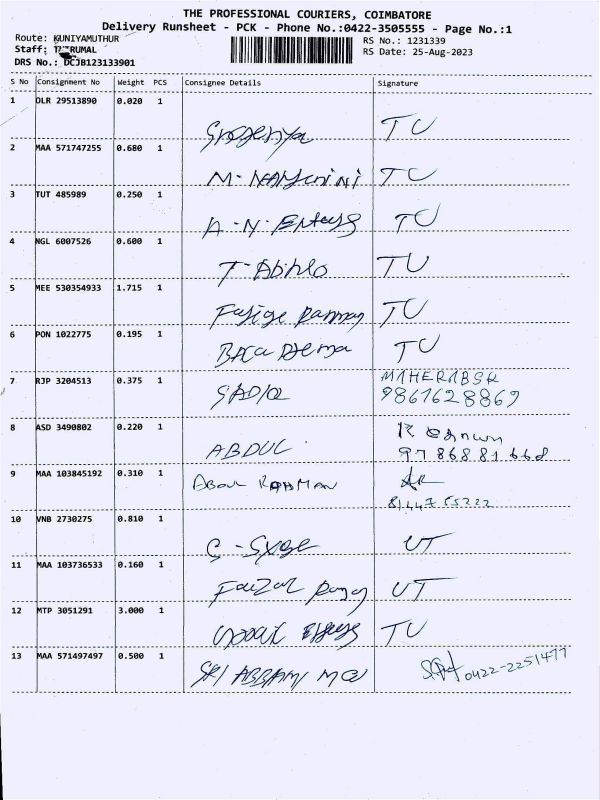 THE PROFESSIONAL COURIERS, COIMBATORE
Delivery Runsheet - PCK - Phone No.:0422-3505555 - Page No.:1
Route: KUNIYAMUTHUR
RS No.: 1231339
Staff: RUMAL
RS Date: 25-Aug-2023
DRS No.: DCJB123133901
S No Consignment No Weight PCS Consignee Details Signature
1 DLR 29513890 0.020 1
TU
2 MAA 571747255 0.680 1
M. TU
3 TUT 485989 0.250 1
A-N- TU
4 NGL 6007526 0.600 1
T- TU
5 MEE 530354933 1.715 1
TU
6 PON 1022775 0.195 1
TU
7 RJP 3204513 0.375 1 MAHERABSR
SADIQ 9861628869
8 ASD 3490802 0.220 1
ABDUL 9786881668
9 MAA 103845192 0.310 1 ABDUL RAHMAN AR
10 VNB 2730275 0.810 1
UT
11 MAA 103736533 0.160 1
UT
12 MTP 3051291 3.000 1
TU
13 MAA 571497497 0.500 1
SRI ABBAMI 0422-2251477